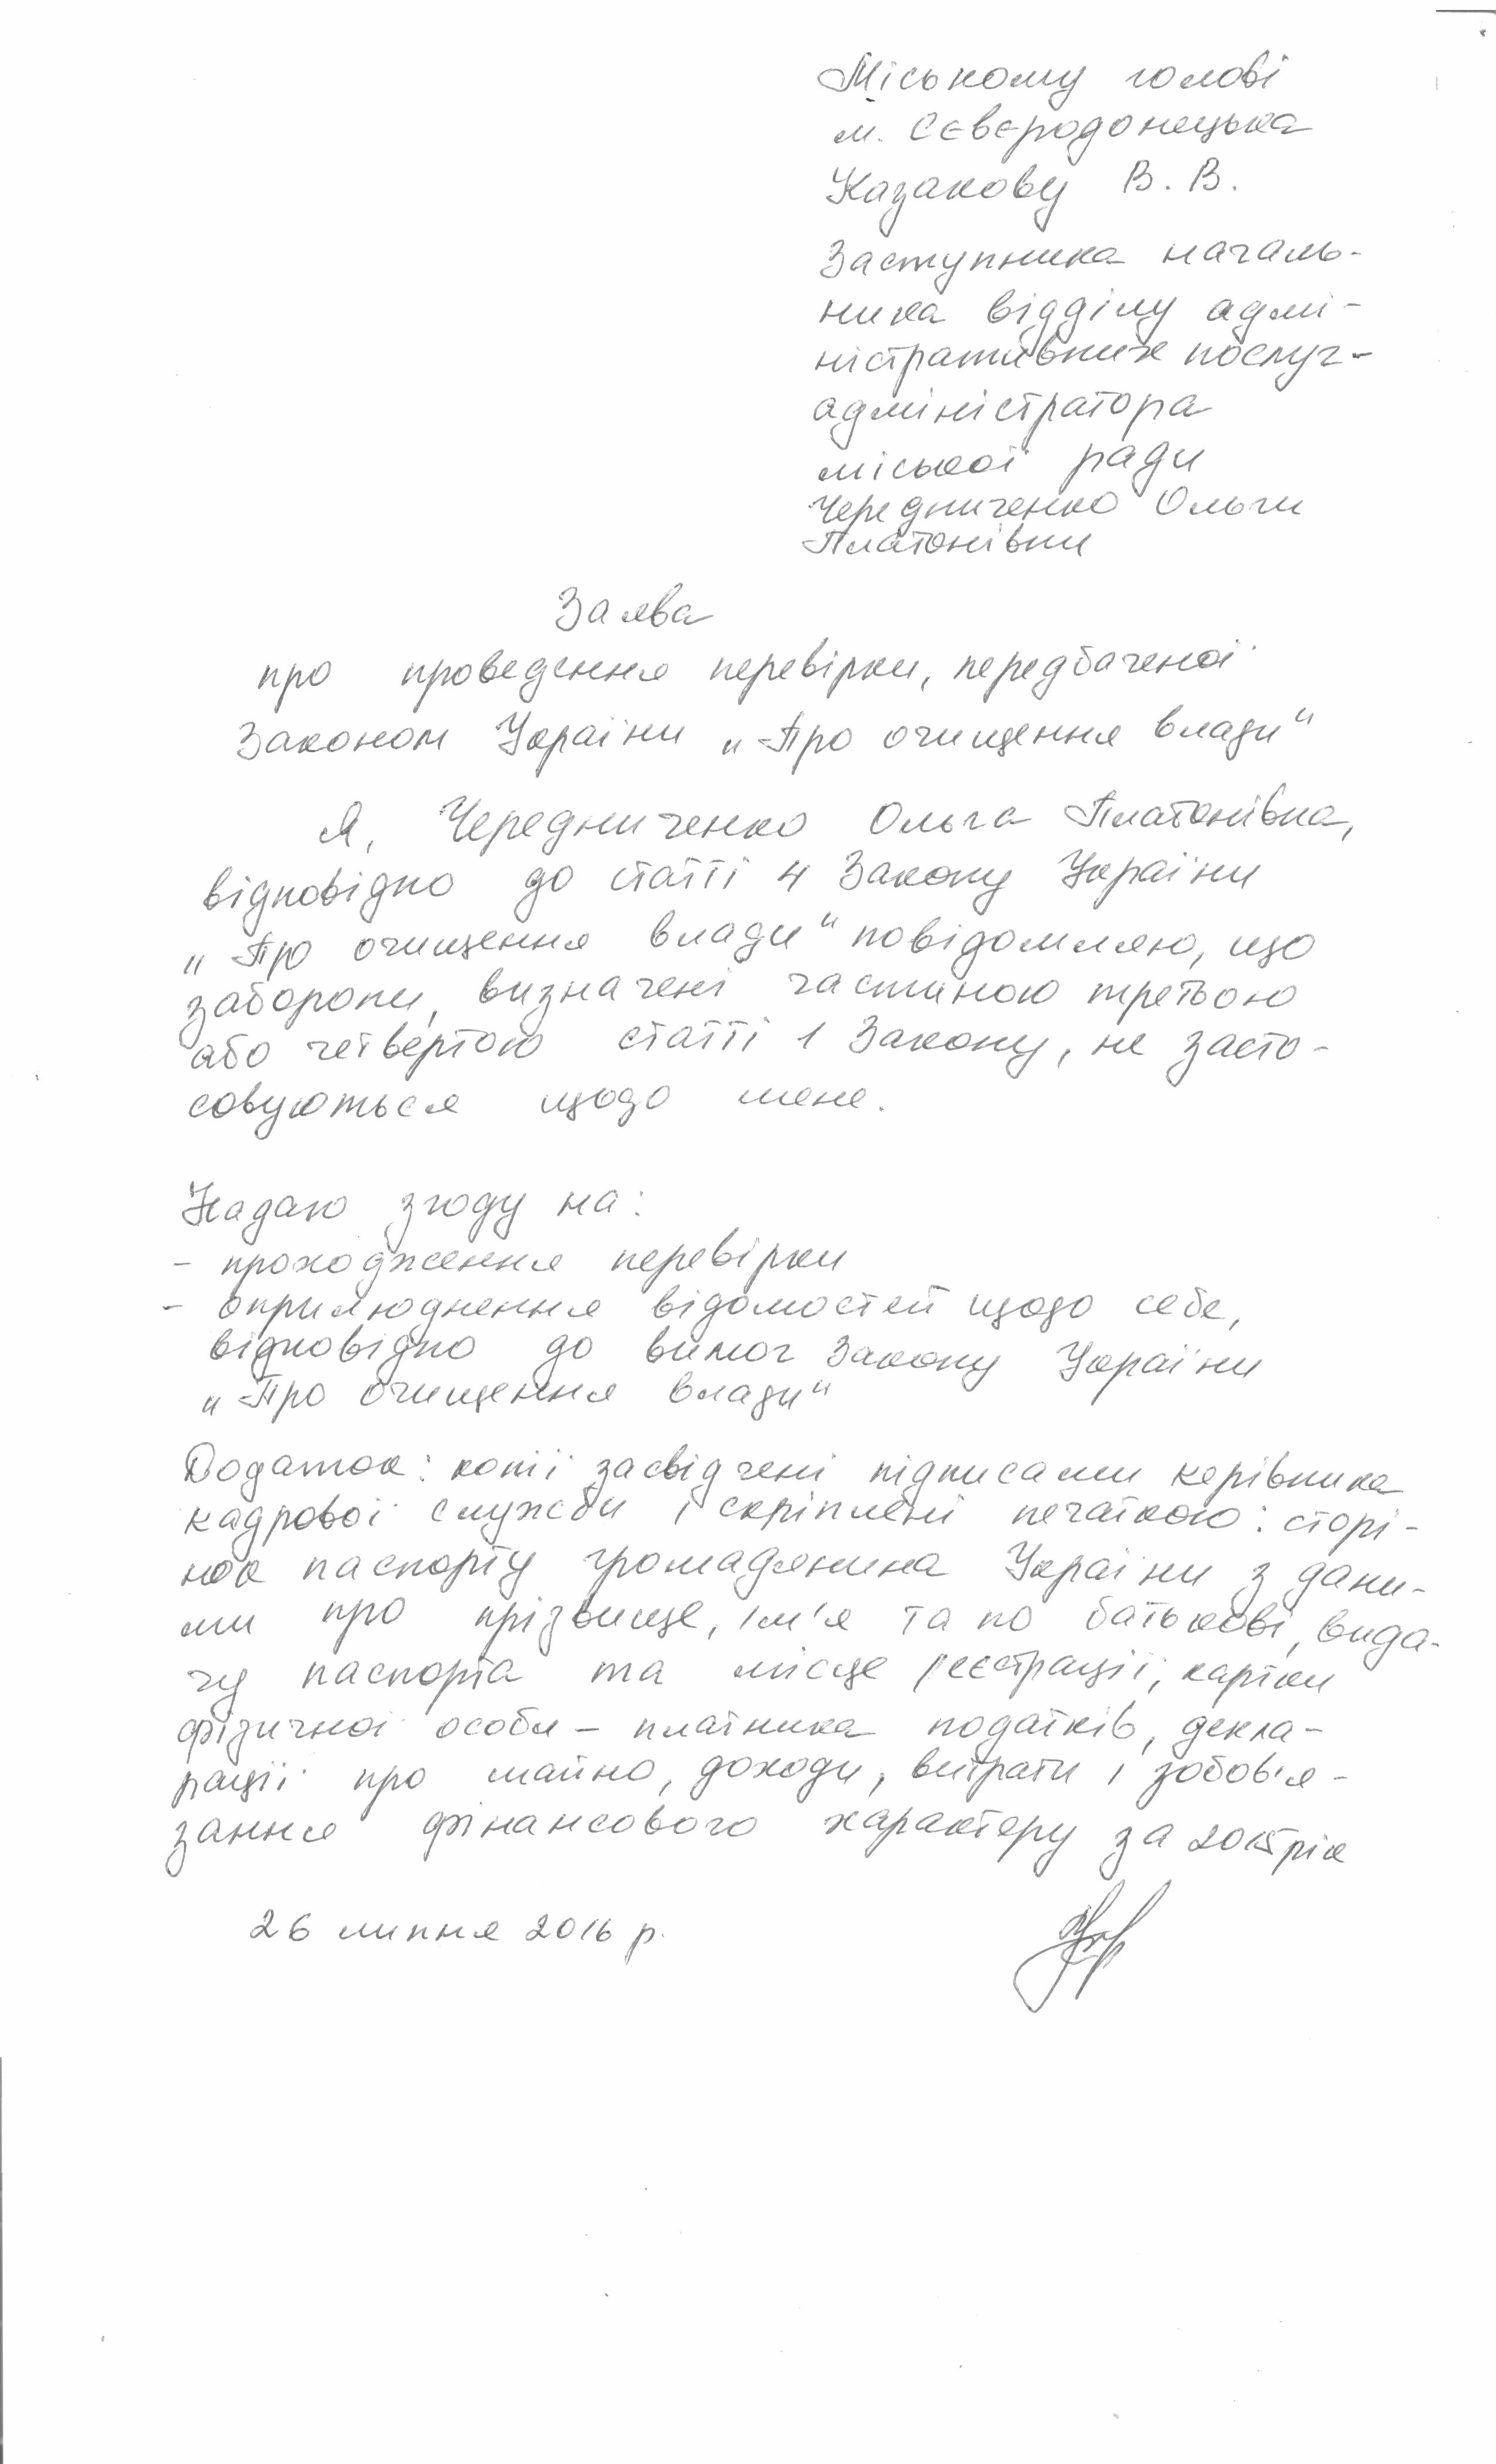 Міському голові
м. Сєвєродонецька
Казакову В. В.
Заступника началь-
ника відділу адмі-
ністративних послуг-
адміністратора
міської ради
Чередниченко Ольги
Платонівни
Заява
про проведення перевірки, передбаченої
Законом України „Про очищення влади“
Я, Чередниченко Ольга Платонівна,
відповідно до статті 4 Закону України
„Про очищення влади“ повідомляю, що
заборони, визначені частиною третьою
або четвертою статті 1 Закону, не засто-
совуються щодо мене.
Надаю згоду на:
- проходження перевірки
- оприлюднення відомостей щодо себе,
відповідно до вимог Закону України
„Про очищення влади“
Додаток: копії засвідчені підписами керівника
кадрової служби і скріплені печаткою: сторі-
нок паспорту громадянина України з дани-
ми про прізвище, ім'я та по батькові, вида-
чу паспорта та місце реєстрації, картки
фізичної особи - платника податків, декла-
рації про майно, доходи, витрати і зобов'я-
зання фінансового характеру за 2015 рік
26 липня 2016 р.